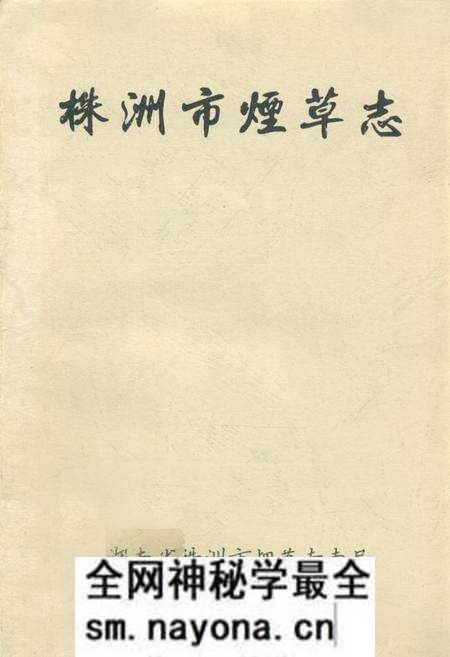 株洲市煙草志
湖南省株洲市烟草专卖局
全网神秘学最全
sm.nayona.cn